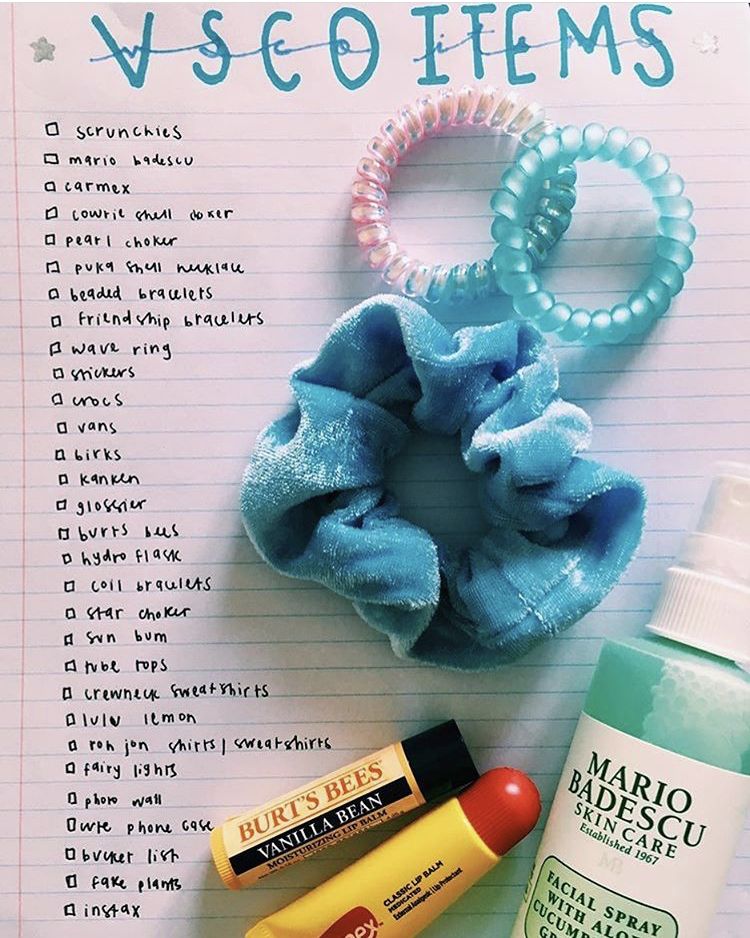 VSCO ITEMS
vsco items
scrunchies
mario badescu
carmex
cowrie shell coker
pearl choker
puka shell necklace
beaded bracelets
friendship bracelets
wave ring
stickers
crocs
vans
birks
kanken
glossier
burts bees
hydro flask
coil bracelets
star choker
sun bum
tube tops
crewneck sweatshirts
lulu lemon
ron jon shirts/sweatshirts
fairy lights
photo wall
cute phone case
bucket list
fake plants
instax
BURT'S BEES
VANILLA BEAN
MOISTURIZING LIP BALM
CLASSIC LIP BALM
MEDICATED
External Analgesic | Lip Protectant
mex
MARIO
BADESCU
SKIN CARE
Established 1967
MB
FACIAL SPRAY
WITH ALO
CUCUM
GR